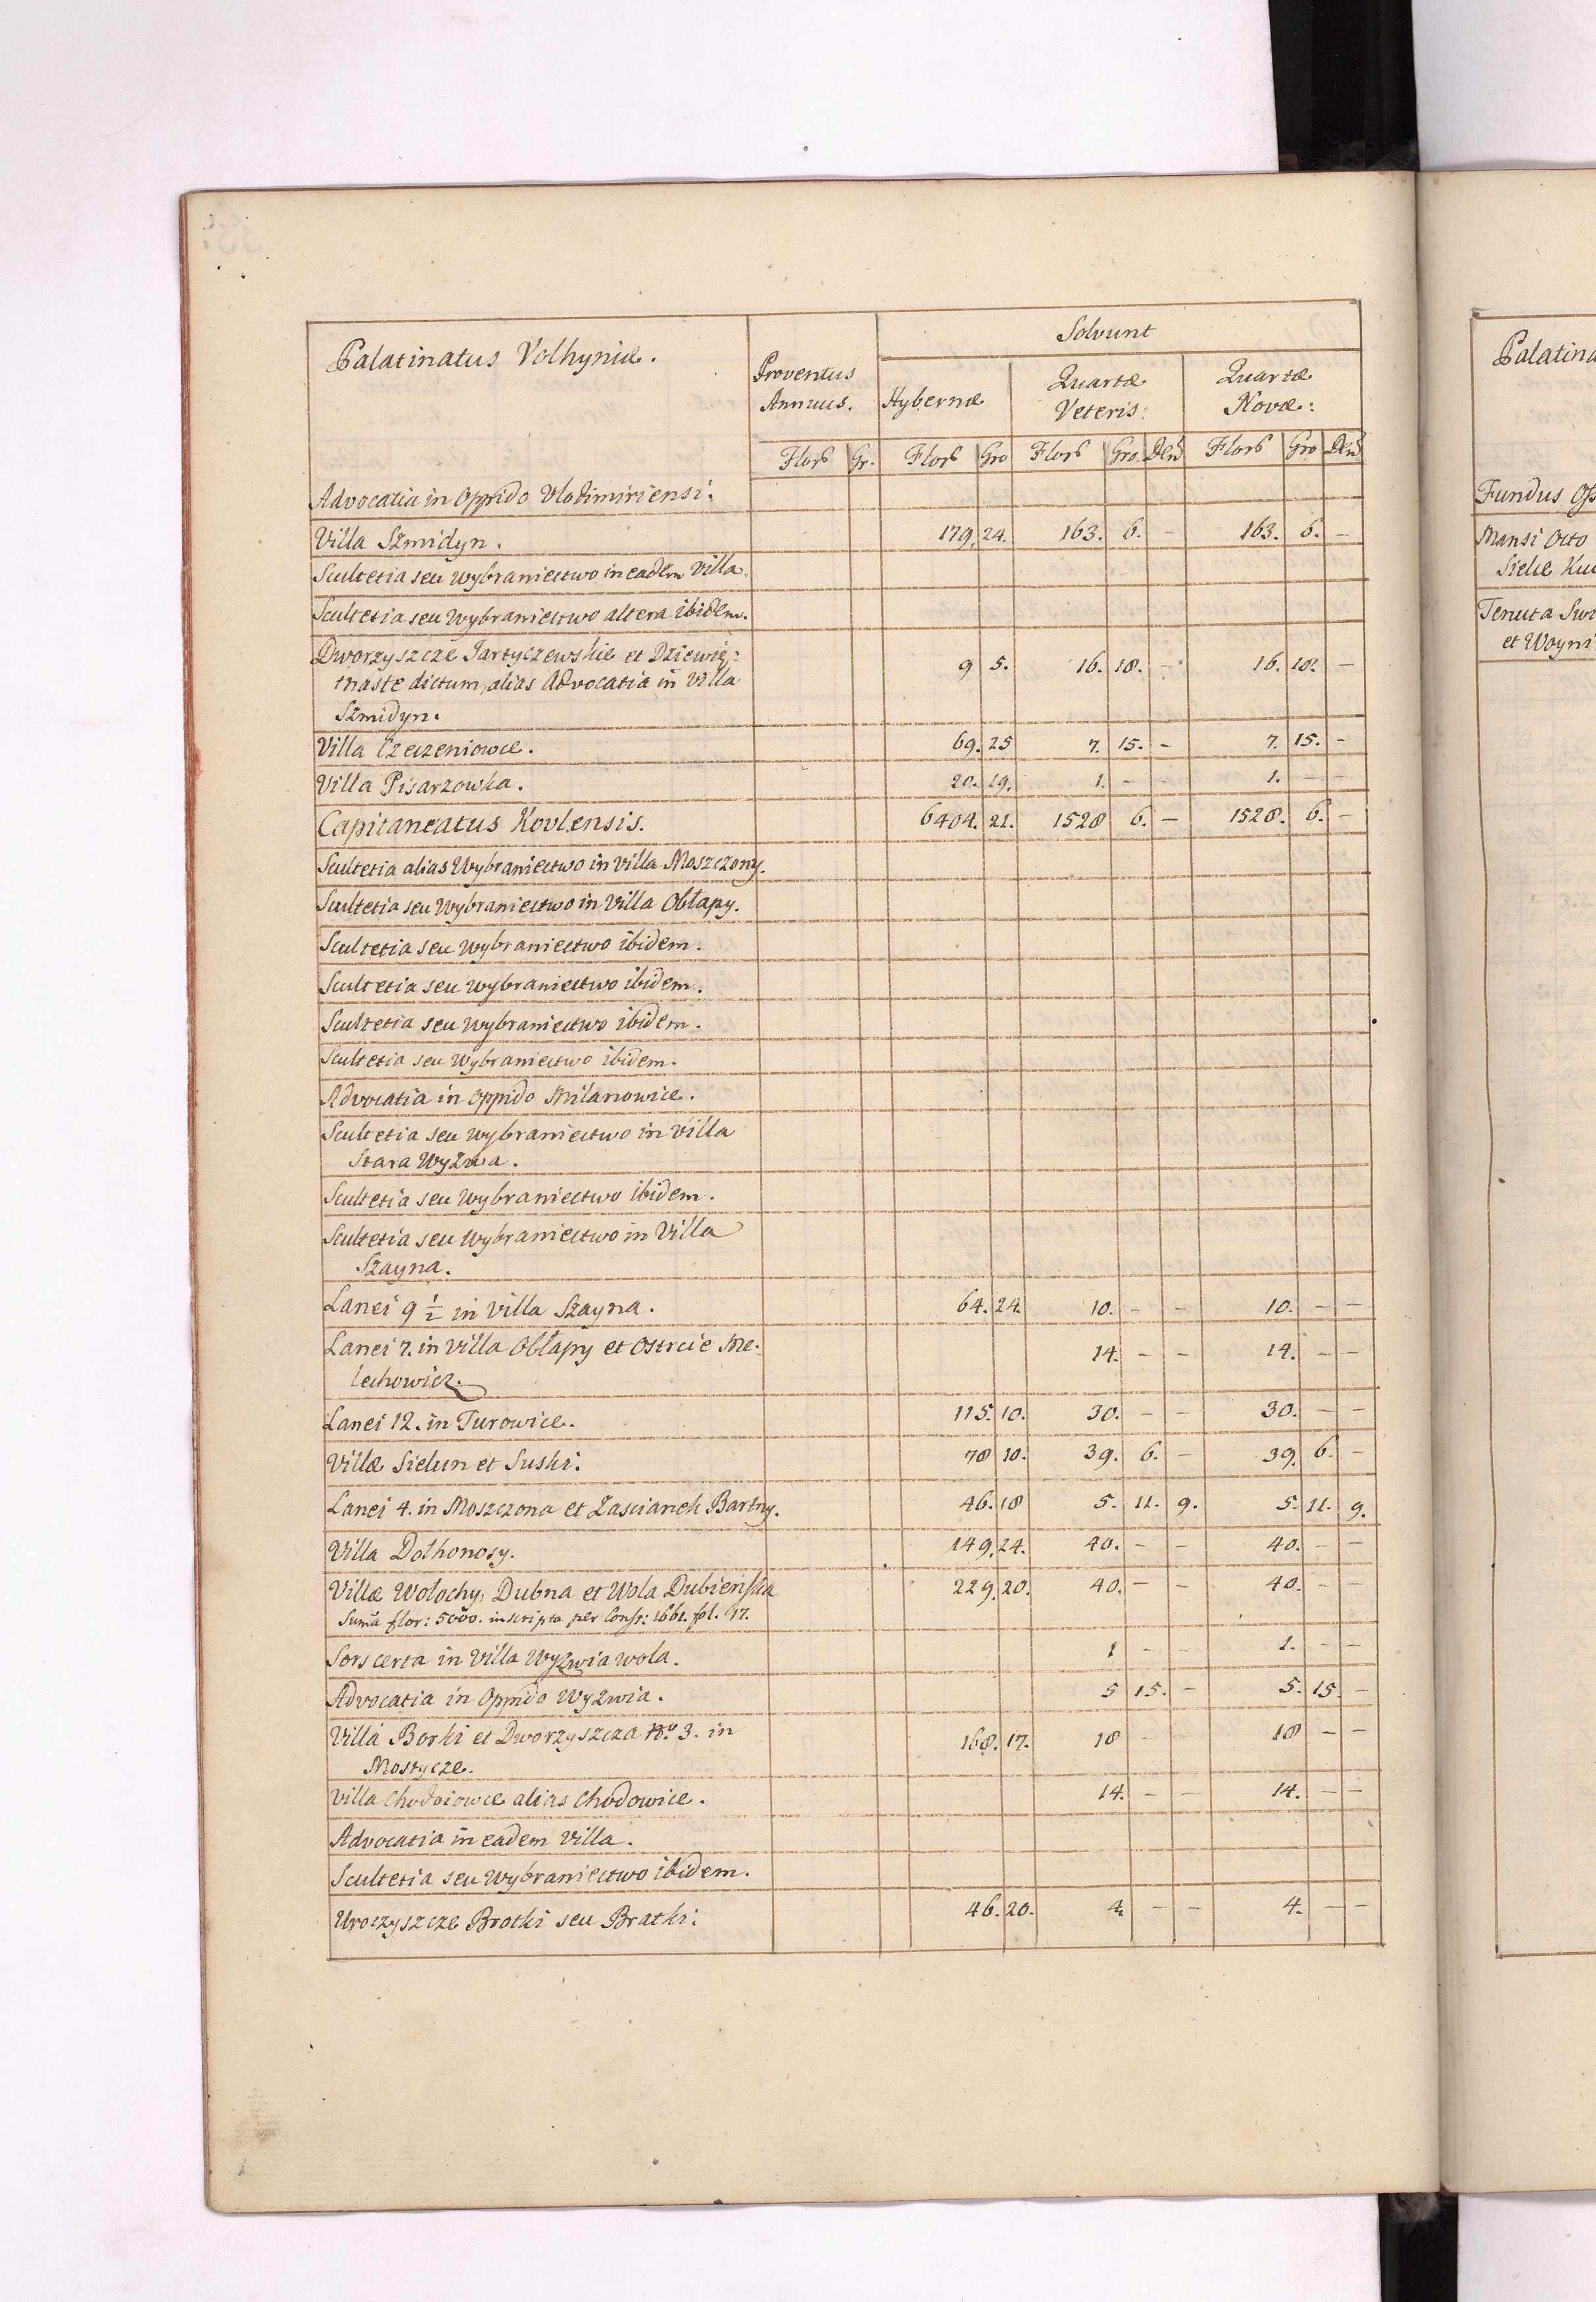 Palatinatus Volhyniæ.
Proventus Annuus.
Solvunt
Hybernæ
Quartæ Veteris:
Quartæ Novæ:
Flor Gr. Flor Gro Flor Gro. Den Flor Gro Den
Advocatia in Oppido Vlodimiriensi.
Villa Szmidyn. 179. 24. 163. 6. – 163. 6. –
Scultetia seu Wybraniectwo in eadem Villa.
Scultetia seu Wybraniectwo altera ibidem.
Dworzyszcze Jartyczewskie et Dziewię:
tnaste dictum, alias Advocatia in Villa 9 5. 16. 18. – 16. 18. –
Szmidyn.
Villa Czeczeniowce. 69. 25 7. 15. – 7. 15. –
Villa Pisarzowka. 20. 19. 1. – – 1. – –
Capitaneatus Kovlensis. 6404. 21. 1528 6. – 1528. 6. –
Scultetia alias Wybraniectwo in Villa Moszczony.
Scultetia seu Wybraniectwo in Villa Obłapy.
Scultetia seu Wybraniectwo ibidem.
Scultetia seu Wybraniectwo ibidem.
Scultetia seu Wybraniectwo ibidem.
Scultetia seu Wybraniectwo ibidem.
Advocatia in Oppido Milanowice.
Scultetia seu Wybraniectwo in Villa
Stara Wyzwa.
Scultetia seu Wybraniectwo ibidem.
Scultetia seu Wybraniectwo in Villa
Szayna.
Lanei 9 1/2 in Villa Szayna. 64. 24. 10. – – 10. – –
Lanei 7. in Villa Obłapy et Ostrcie Me: 14. – – 14. – –
lechowicz.
Lanei 12. in Turowice. 115. 10. 30. – – 30. – –
Villæ Sielun et Suski. 78 10. 39. 6. – 39. 6. –
Lanei 4. in Moszczona et Zascianek Bartny. 46. 18 5. 11. 9. 5. 11. 9.
Villa Dołhonosy. 149. 24. 40. – – 40. – –
Villæ Wołochy, Dubna et Wola Dubieńska 229. 20. 40. – – 40. – –
Suma flor: 5000. inscripta per Const: 1661. fol. 17.
Sors certa in Villa Wyzwia wola. 1 – – 1. – –
Advocatia in Oppido Wyzwia. 5 15. – 5. 15. –
Villa Borki et Dworzyszcza No 3. in 168. 17. 18 – – 18 – –
Mostycze.
Villa Chodoiowce alias Chodowice. 14. – – 14. – –
Advocatia in eadem Villa.
Scultetia seu Wybraniectwo ibidem.
Uroczyszcze Brotki seu Bratki. 46. 20. 4. – – 4. – –
Fundus
Mansi Octo
Tenuta
et Woyni